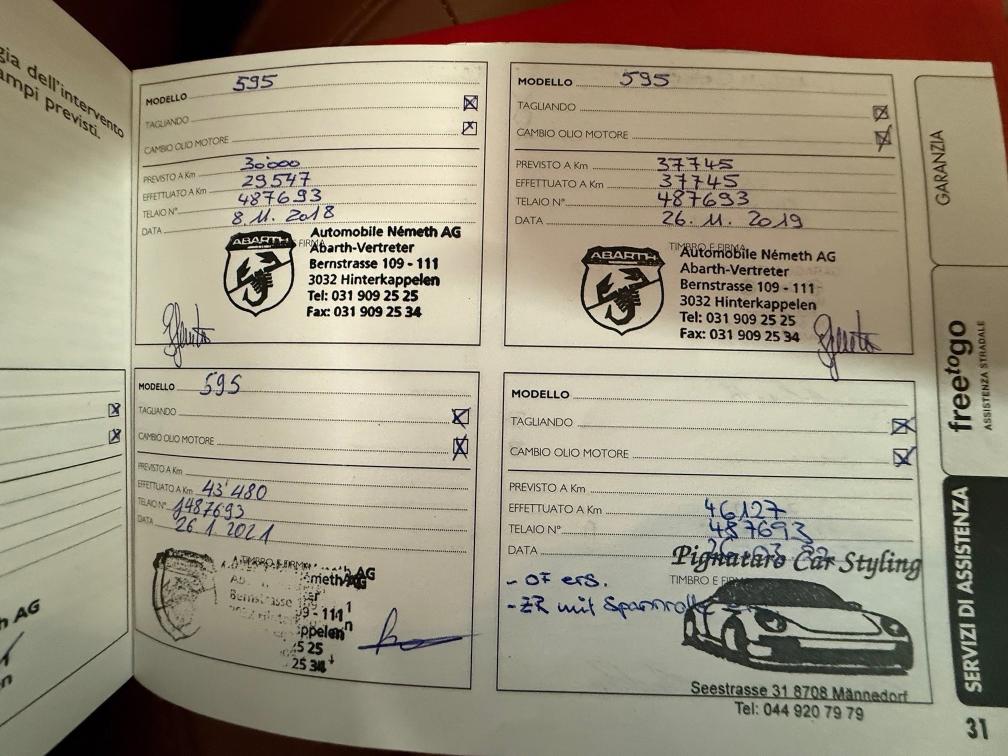 gia dell'intervento
ampi previsti.
MODELLO 595
TAGLIANDO
CAMBIO OLIO MOTORE
PREVISTO A Km 30'000
EFFETTUATO A Km 29547
TELAIO N° 487693
DATA 8.11.2018
E FIRMA
ABARTH
Automobile Németh AG
Abarth-Vertreter
Bernstrasse 109 - 111
3032 Hinterkappelen
Tel: 031 909 25 25
Fax: 031 909 25 34
MODELLO 595
TAGLIANDO
CAMBIO OLIO MOTORE
PREVISTO A Km 37745
EFFETTUATO A Km 37745
TELAIO N° 487693
DATA 26.11.2019
TIMBRO E FIRMA
ABARTH
Automobile Németh AG
Abarth-Vertreter
Bernstrasse 109 - 111
3032 Hinterkappelen
Tel: 031 909 25 25
Fax: 031 909 25 34
MODELLO 595
TAGLIANDO
CAMBIO OLIO MOTORE
PREVISTO A Km
EFFETTUATO A Km 43'480
TELAIO N° 1487693
DATA 26.1.2021
TIMBRO E FIRMA
meth AG
Bernstrasse
9 - 111
ppelen
5 25
25 34
MODELLO
TAGLIANDO
CAMBIO OLIO MOTORE
PREVISTO A Km
EFFETTUATO A Km 46127
TELAIO N° 487693
DATA
Pignataro Car Styling
TIMBRO E FIRMA
- OF ers.
- ZR mit Spannrolle
Seestrasse 31 8708 Männedorf
Tel: 044 920 79 79
h AG
n
GARANZIA
freetogo
ASSISTENZA STRADALE
SERVIZI DI ASSISTENZA
31